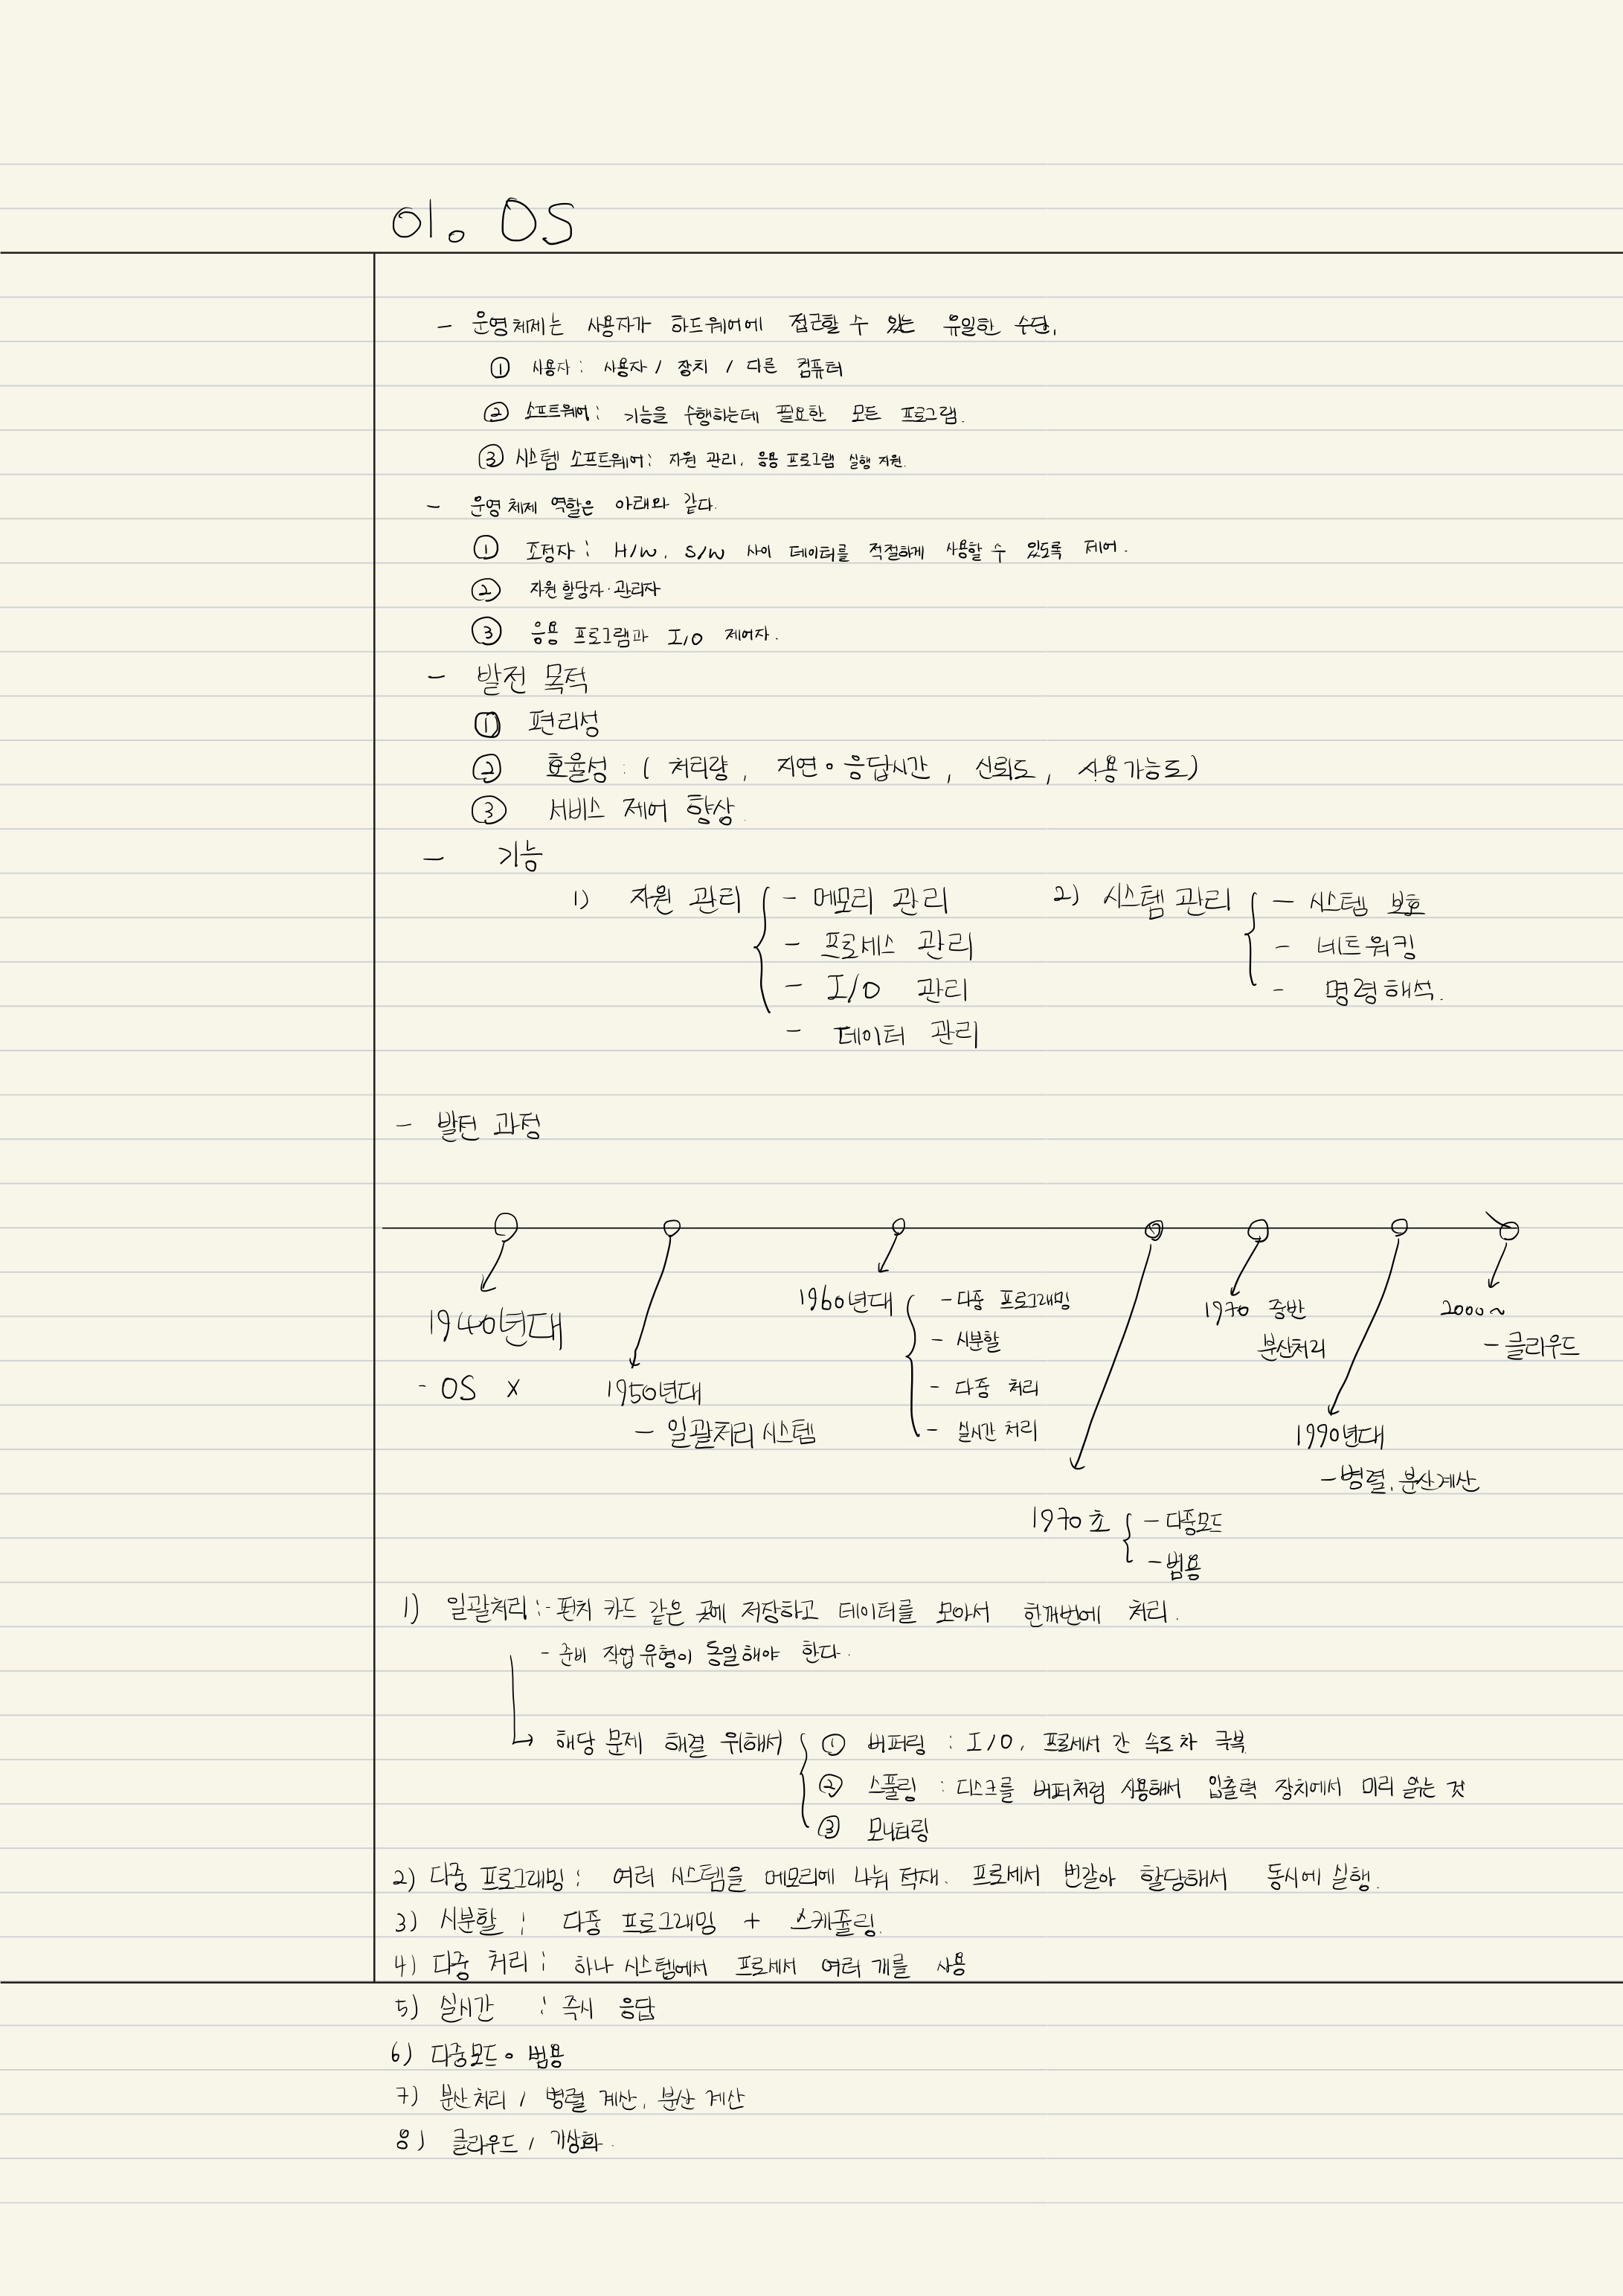 01. OS
- 운영체제는 사용자가 하드웨어에 접근할 수 있는 유일한 수단.
① 사용자 : 사용자 / 장치 / 다른 컴퓨터
② 소프트웨어 : 기능을 수행하는데 필요한 모든 프로그램.
③ 시스템 소프트웨어 : 자원 관리, 응용 프로그램 실행 지원.
- 운영체제 역할은 아래와 같다.
① 조정자 : H/W, S/W 사이 데이터를 적절하게 사용할 수 있도록 제어.
② 자원 할당자·관리자
③ 응용 프로그램과 I/O 제어자.
- 발전 목적
① 편리성
② 효율성 : ( 처리량, 지연·응답시간, 신뢰도, 사용가능도)
③ 서비스 제어 향상.
- 기능
1) 자원 관리
- 메모리 관리
- 프로세스 관리
- I/O 관리
- 데이터 관리
2) 시스템 관리
- 시스템 보호
- 네트워킹
- 명령해석.
- 발전 과정
1940년대
- OS x
1950년대
- 일괄처리 시스템
1960년대
- 다중 프로그래밍
- 시분할
- 다중 처리
- 실시간 처리
1970초
- 다중모드
- 범용
1970 중반
분산처리
1990년대
- 병렬, 분산계산
2000~
- 클라우드
1) 일괄처리 : - 펀치 카드 같은 곳에 저장하고 데이터를 모아서 한꺼번에 처리.
- 준비 작업 유형이 동일해야 한다.
해당 문제 해결 위해서
① 버퍼링 : I/O, 프로세서 간 속도차 극복
② 스풀링 : 디스크를 버퍼처럼 사용해서 입출력 장치에서 미리 읽는 것
③ 모니터링
2) 다중 프로그래밍 : 여러 시스템을 메모리에 나눠 적재. 프로세서 번갈아 할당해서 동시에 실행.
3) 시분할 : 다중 프로그래밍 + 스케줄링.
4) 다중 처리 : 하나 시스템에서 프로세서 여러 개를 사용
5) 실시간 : 즉시 응답
6) 다중모드·범용
7) 분산처리 / 병렬 계산, 분산 계산
8) 클라우드 / 가상화.